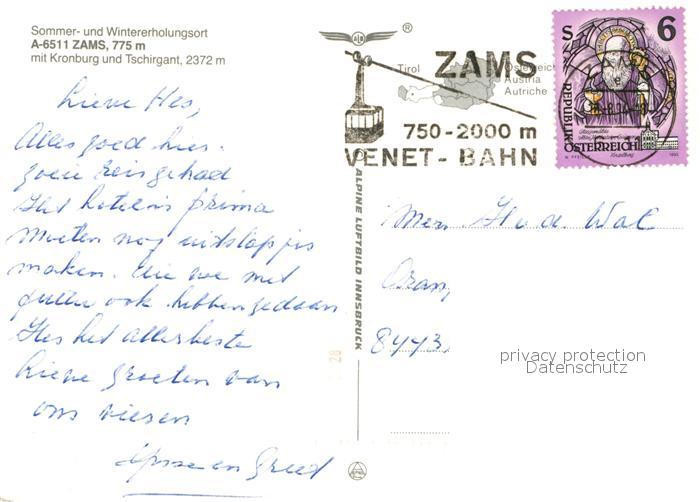 Sommer- und Wintererholungsort
A-6511 ZAMS, 775 m
mit Kronburg und Tschirgant, 2372 m
Lieve Hes,
Alles goed hier.
goeie reis gehad
Het hotel is prima
Moeten nog uitstapjes
maken. die we met
ook hebben gedaan
Hes het allerbeste
Lieve groeten van
ons
en Greed
ALPINE LUFTBILD INNSBRUCK
ALB
®
Tirol
Österreich
Austria
Autriche
ZAMS
750-2000 m
VENET-BAHN
S 6
REPUBLIK
ÖSTERREICH
H. v. d. Wal
Oran
8443
privacy protection
Datenschutz